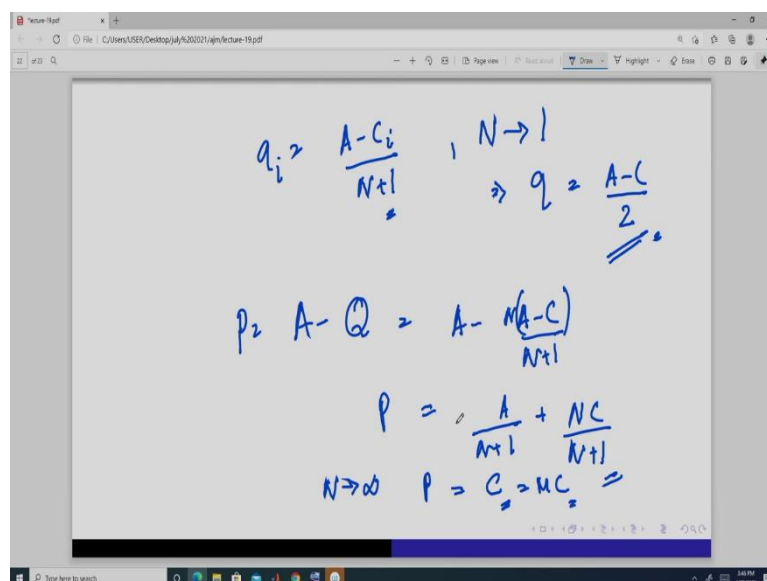 *lecture-19.pdf
File | C:/Users/USER/Desktop/july%202021/ajm/lecture-19.pdf
22 of 23 Page view Read aloud Draw Highlight Erase
q_i = (A-C_i)/(N+1) , N→1
⇒ q = (A-C)/2
P = A - Q = A - N(A-C)/(N+1)
P = A/(N+1) + NC/(N+1)
N→∞ P = C = MC
Type here to search 3:46 PM